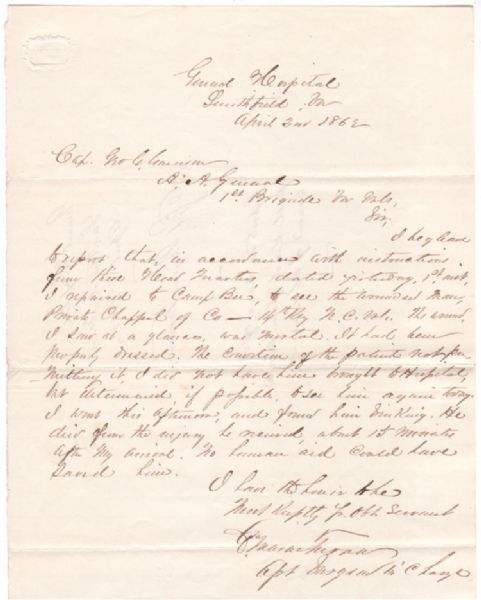 General Hospital
Smithfield Va
April 2nd 1862
Cap. Jno C.
A. A. General
1st Brigade Va Vols,
Sir,
I beg leave
to report that, in accordance with instructions
from these Head Quarters, dated yesterday, 1st inst,
I repaired to Camp Bee, to see the wounded man,
Private Chappel of Co — 14th Reg N.C. Vols. The wound,
I saw at a glance, was mortal. It had been
properly dressed. The condition of the patient not per
mitting it I did not have him brought to Hospital,
but determined, if possible, to see him again today.
I went this afternoon, and found him sinking. He
died from the injury he received, about 15 minutes
after my arrival. No human aid could have
saved him.
I have the honor to be
Most Resptly Yr Obt Servant
Asst Surgeon in Charge